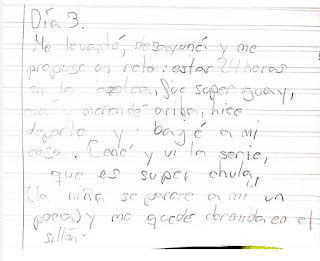 Día 3.
Me levanté, desayuné y me
propuse un reto: estar 24 horas
en la azotea, fue super guay,
comí y merendé ariba, hice
deporte y bajé a mi
casa. Cené y vi la serie,
que es super chula,
(la niña se parece a mi un
poca) y me quedé dormida en el
sillón.